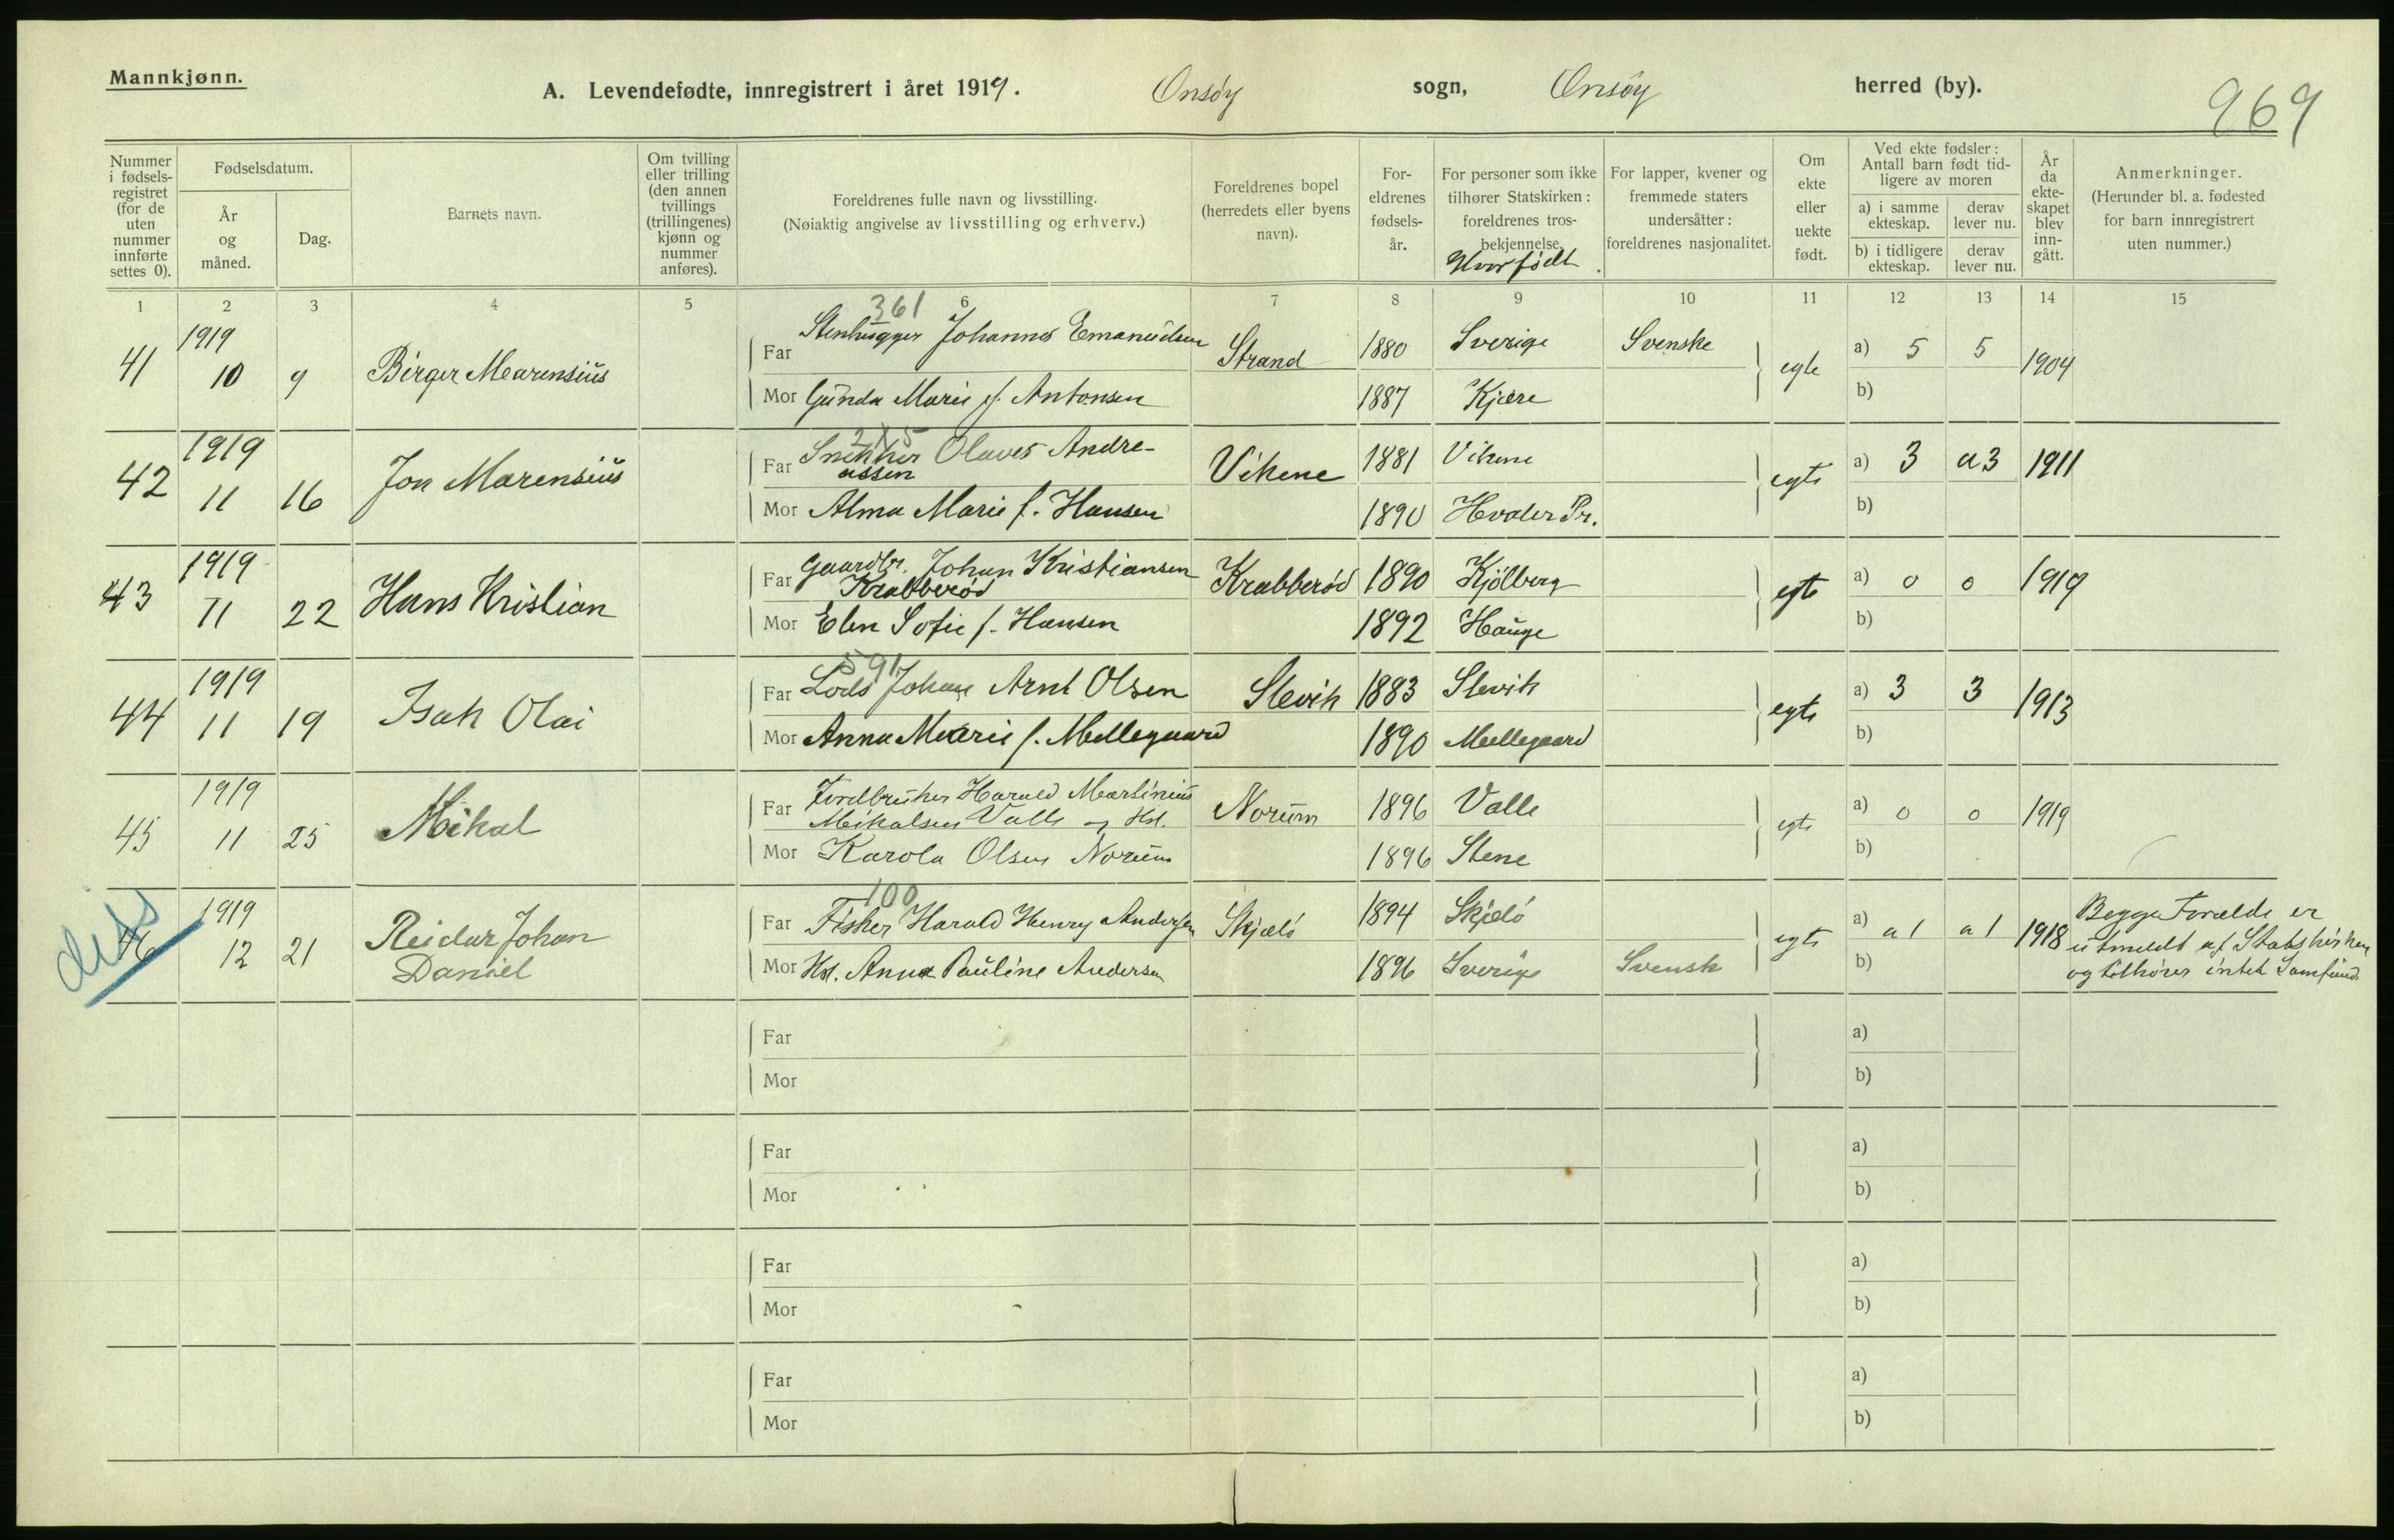 Mannkjønn.
A. Levendefødte, innregistrert i året 1919. Onsöy sogn, Onsöy herred (by).
969
Nummer i fødselsregistret (for de uten nummer innførte settes 0).
Fødselsdatum.
År og måned.
Dag.
Barnets navn.
Om tvilling eller trilling (den annen tvillings (trillingenes) kjønn og nummer anføres).
Foreldrenes fulle navn og livsstilling.
(Nøiaktig angivelse av livsstilling og erhverv.)
Foreldrenes bopel (herredets eller byens navn).
Foreldrenes fødselsår.
For personer som ikke tilhører Statskirken: foreldrenes trosbekjennelse.
Hvor födt
For lapper, kvener og fremmede staters undersåtter: foreldrenes nasjonalitet.
Om ekte eller uekte født.
Ved ekte fødsler: Antall barn født tidligere av moren
a) i samme ekteskap.
derav lever nu.
b) i tidligere ekteskap.
derav lever nu.
År da ekteskapet blev inngått.
Anmerkninger.
(Herunder bl. a. fødested for barn innregistrert uten nummer.)
1 2 3 4 5 6 7 8 9 10 11 12 13 14 15
361
41 1919 10 9 Birger Marensius
Far Stenhugger Johannes Emanuelsen Strand 1880 Sverige Svenske egte a) 5 5 1904
Mor Gunda Marie f. Antonsen 1887 Kjære b)
215
42 1919 11 16 Jon Marensius
Far Snekker Olaves Andreassen Vikene 1881 Vikene egte a) 3 a3 1911
Mor Alma Marie f. Hansen 1890 Hvaler Pr. b)
43 1919 11 22 Hans Kristian
Far Gaardbr. Johan Kristiansen
Krabberød Krabberød 1890 Kjölberg egte a) 0 0 1919
Mor Elen Sofie f. Hansen 1892 Hauge b)
591
44 1919 11 19 Isak Olai
Far Lods Johan Arnt Olsen Slevik 1883 Slevik egte a) 3 3 1913
Mor Anna Marie f. Mellegaard 1890 Mellegaard b)
45 1919 11 25 Mikal
Far Jordbruker Harald Martinius
Mikalsen Valle og Hst. Norum 1896 Valle egte a) 0 0 1919
Mor Karola Olsen Norum 1896 Stene b)
diss
100
46 1919 12 21 Reidar Johan
Daniel
Far Fisker Harald Henry Andersen Skjelö 1894 Skjelö egte a) a1 a1 1918
Mor Hst. Anna Pauline Andersen 1896 Sverige Svensk b)
Begge Forældre er
utmeldt af Statskirken
og tilhører intet Samfund.
Far a)
Mor b)
Far a)
Mor b)
Far a)
Mor b)
Far a)
Mor b)